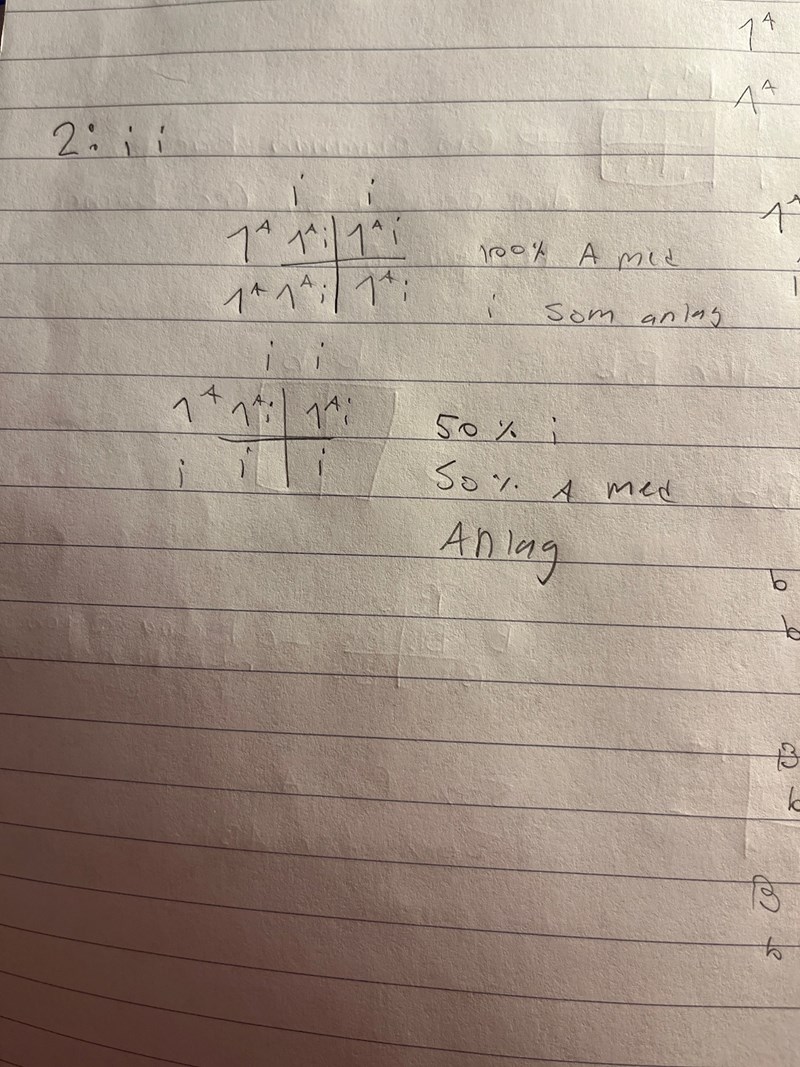 1ᴬ
1ᴬ
2: i i
i i
1ᴬ 1ᴬi 1ᴬi
1ᴬ 1ᴬi 1ᴬi
100% A med
i som anlag
1ᴬ
i
i i
1ᴬ 1ᴬi 1ᴬi
i i i
50% i
50% A med
Anlag
b
b
B
b
B
b